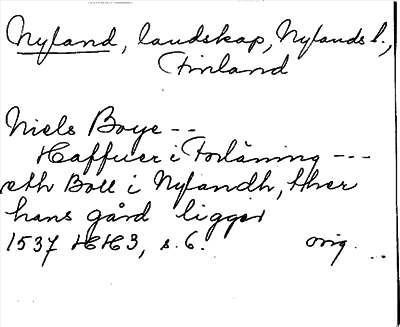 Nyland, landskap, Nylands l.,
Finland
Niels Boye --
Haffuer i Forläning ---
eth Boll i Nylandh, ther
hans gård ligger
1537 HH3, s. 6. orig.